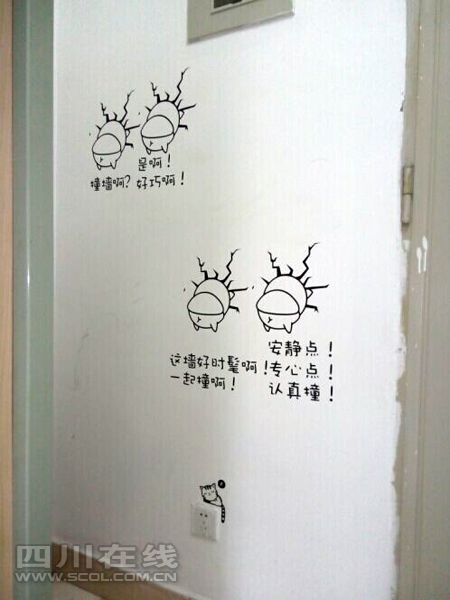 是啊！
撞墙啊？好巧啊！
安静点！
这墙好时髦啊！专心点！
一起撞啊！ 认真撞！
四川在线
www.scol.com.cn